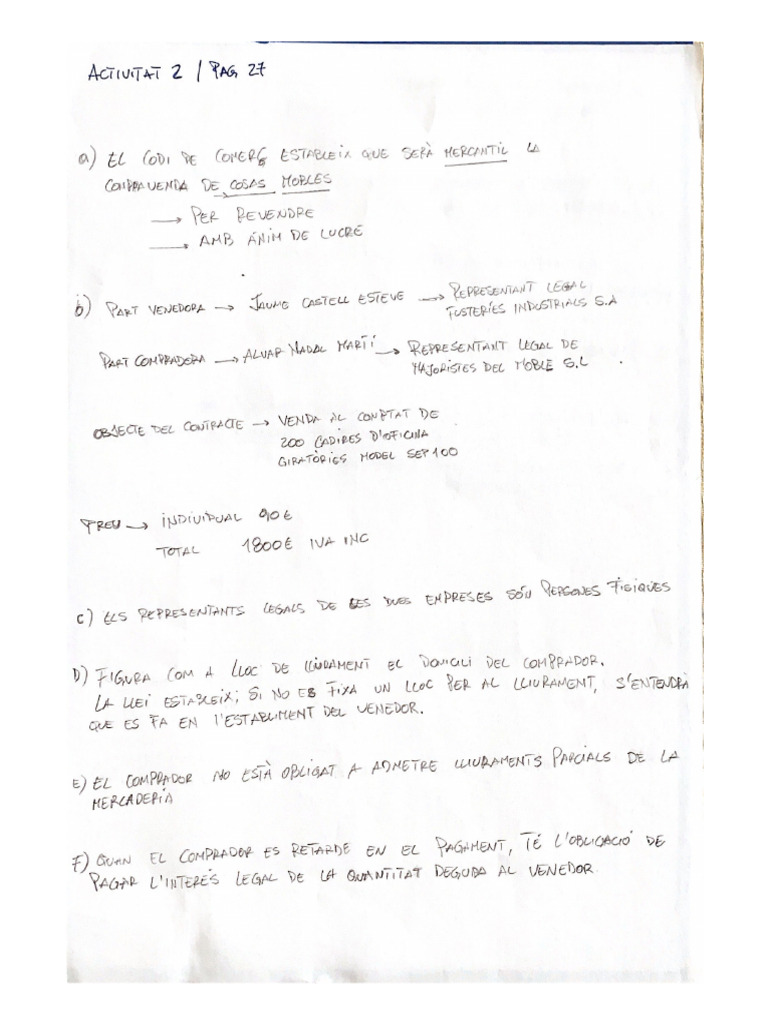 ACTIVITAT 2 / PAG 27
a) EL CODI DE COMERÇ ESTABLEIX QUE SERÀ MERCANTIL LA
COMPRAVENDA DE COSAS MOBLES
→ PER REVENDRE
→ AMB ÁNIM DE LUCRE
b) PART VENEDORA → JAUME CASTELL ESTEVE → REPRESENTANT LEGAL
FUSTERÍES INDUSTRIALS S.A
PART COMPRADERA → ALVAR NADAL MARTÍ → REPRESENTANT LEGAL DE
MAJORISTES DEL MOBLE S.L
OBJECTE DEL CONTRACTE → VENDA AL COMPTAT DE
200 CADIRES D'OFICINA
GIRATÒRIES MODEL SEP100
PREU → INDIVIDUAL 90€
TOTAL 1800€ IVA INC
C) ELS REPRESENTANTS LEGALS DE LES DUES EMPRESES SÓN PERSONES FISIQUES
D) FIGURA COM A LLOC DE LLIURAMENT EL DOMICILI DEL COMPRADOR.
LA LLEI ESTABLEIX; SI NO ES FIXA UN LLOC PER AL LLIURAMENT, S'ENTENDRÀ
QUE ES FA EN L'ESTABLIMENT DEL VENEDOR.
E) EL COMPRADOR NO ESTÀ OBLIGAT A ADMETRE LLIURAMENTS PARCIALS DE LA
MERCADERÍA
F) QUAN EL COMPRADOR ES RETARDE EN EL PAGAMENT, TÉ L'OBLIGACIÓ DE
PAGAR L'INTERÉS LEGAL DE LA QUANTITAT DEGUDA AL VENEDOR.